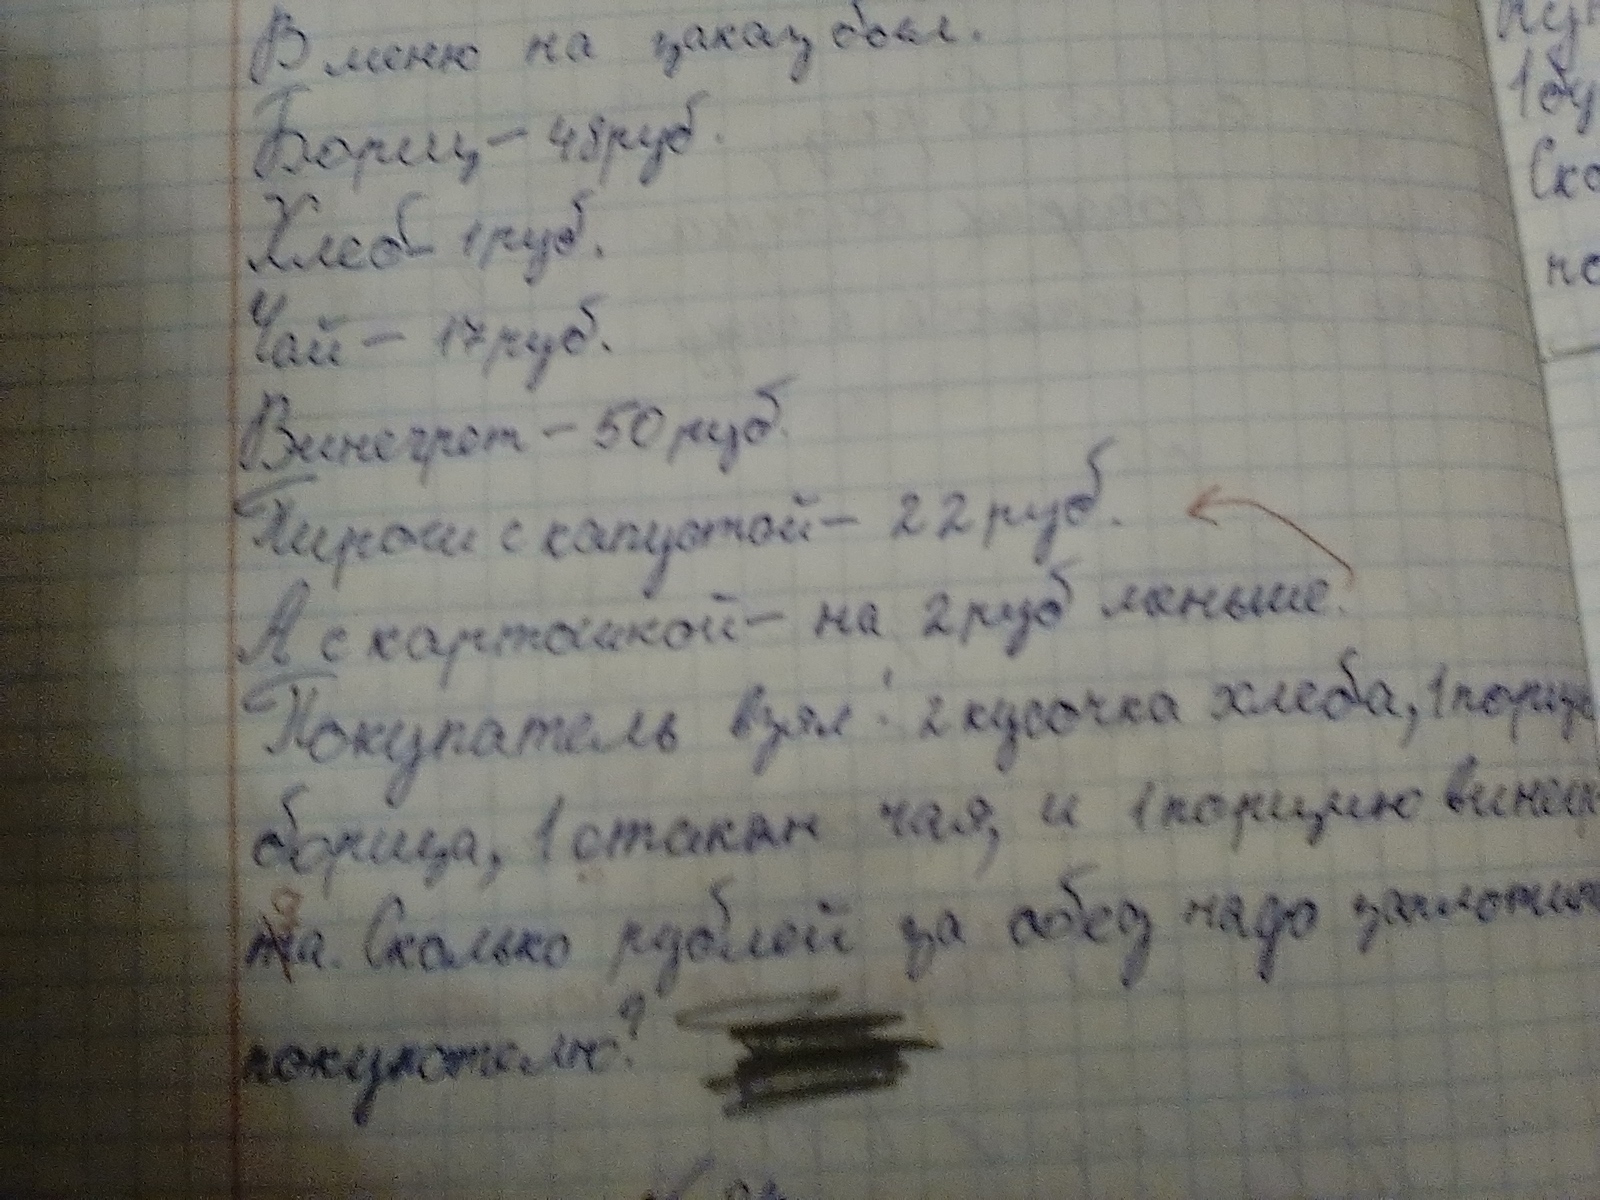 В меню на заказ был.
Борщ - 48 руб.
Хлеб - 1 руб.
Чай - 17 руб.
Винегрет - 50 руб.
Пироги с капустой - 22 руб.
А с картошкой - на 2 руб меньше.
Покупатель взял: 2 кусочка хлеба, 1 порцию
борща, 1 стакан чая, и 1 порцию винегр
та. Сколько рублей за обед надо заплотить
покупателю?
1 бу
Ско